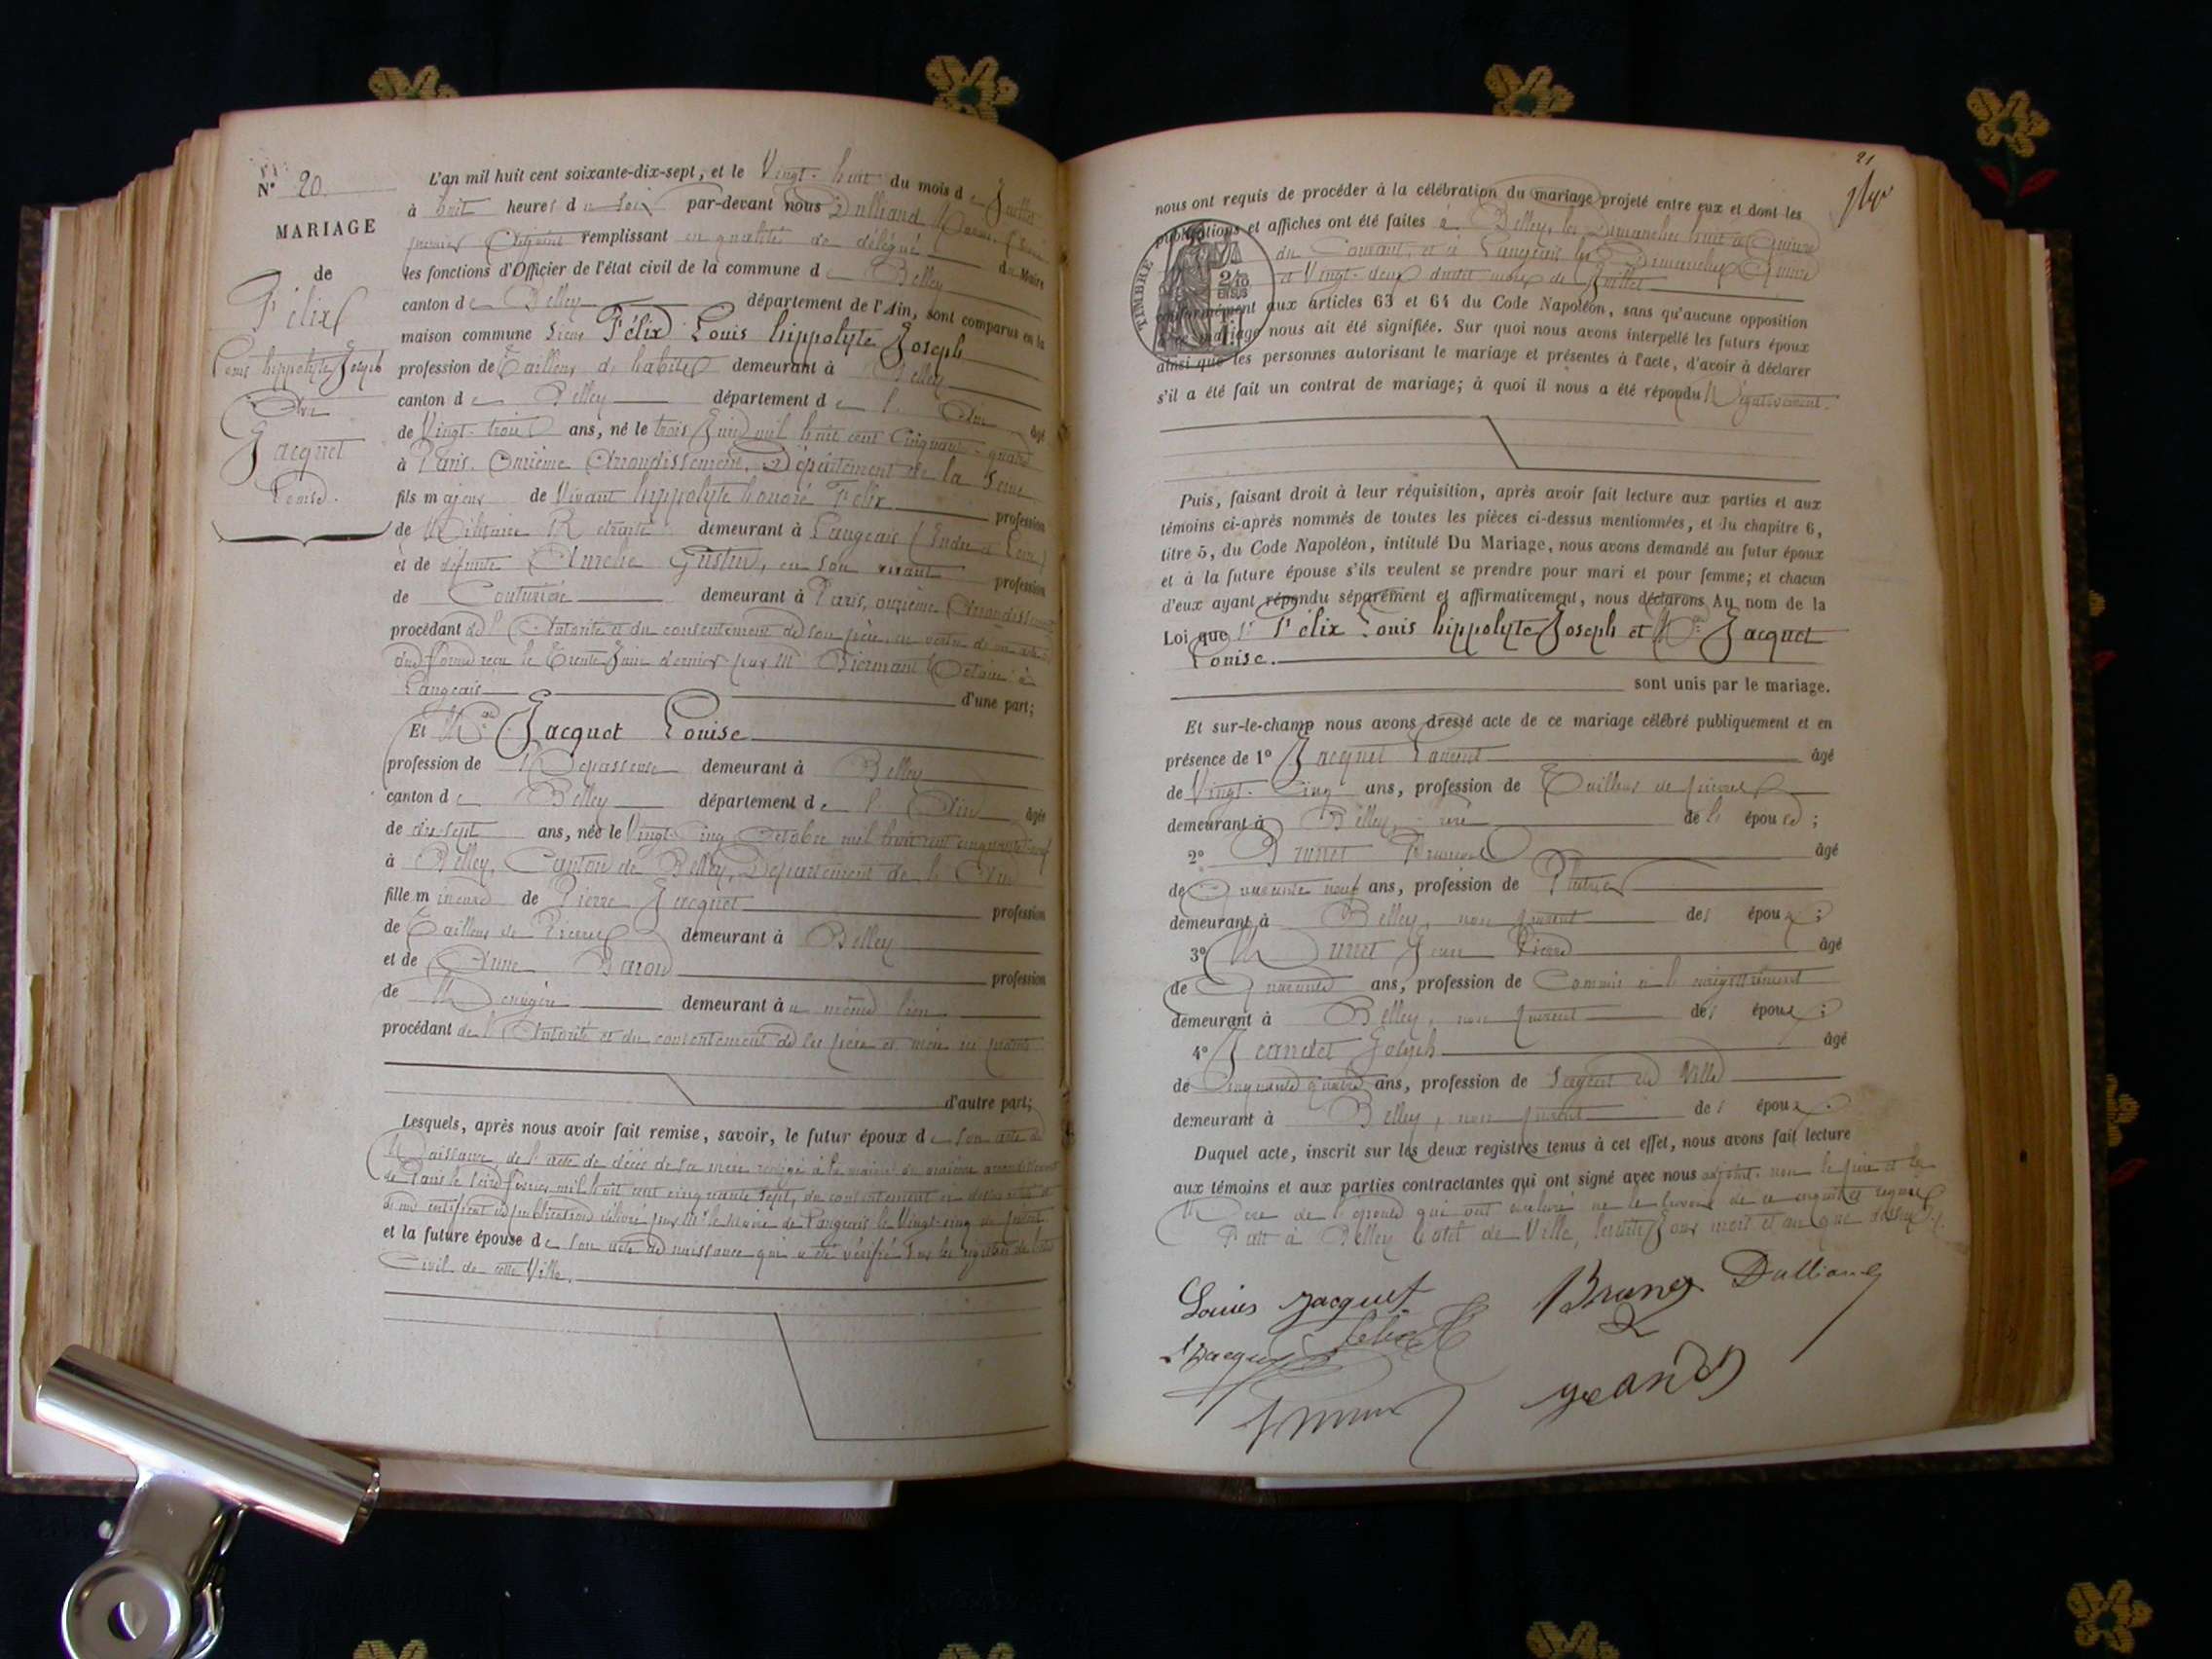 N° 20.
MARIAGE
de
Félix
Louis hippolyte Joseph
Jacquet
Louise.
L'an mil huit cent soixante-dix-sept, et le Vingt-huit du mois de Juillet
à huit heures du soir par-devant nous Dulliand
premier Adjoint remplissant en qualité de délégué du Maire
les fonctions d'Officier de l'état civil de la commune de Belley
canton de Belley département de l'Ain, sont comparus en la
maison commune Sieur Félix Louis hippolyte Joseph
profession de Tailleur d'habits demeurant à Belley
canton de Belley département de l'Ain âgé
de Vingt-trois ans, né le trois Juin mil huit cent Cinquante-quatre
à Paris, Onzième Arrondissement, Département de la Seine
fils majeur de Vivant hippolyte honoré Félix profession
de Militaire Retraité demeurant à Langeais (Indre et Loire)
et de défunte Aurélie Gustin, en son vivant profession
de Couturière demeurant à Paris, onzième Arrondissement
procédant de l'Autorité et du consentement de son père, en vertu d'un acte
reçu le Trente Juin dernier par Me Notaire à
Langeais d'une part;
Et Mlle Jacquet Louise
profession de Repasseuse demeurant à Belley
canton de Belley département de l'Ain âgée
de dix sept ans, née le Vingt-Cinq Octobre mil huit cent cinquante-neuf
à Belley, Canton de Belley, Département de l'Ain
fille mineure de Pierre Jacquet profession
de Tailleur de Pierres demeurant à Belley
et de Anne Baron profession
de Ménagère demeurant au même lieu
procédant de l'Autorité et du consentement de ses père et mère ici présents
d'autre part;
Lesquels, après nous avoir fait remise, savoir, le futur époux de son acte de
Naissance, de l'acte de décès de sa mère rédigé à la mairie du onzième arrondissement
de Paris le février mil huit cent cinquante sept, du consentement
certificat de publications délivré par Mr le Maire de Langeais le Vingt-cinq du présent
et la future épouse de son acte de naissance qui a été vérifié sur les registres de l'état
Civil de cette Ville.
21
nous ont requis de procéder à la célébration du mariage projeté entre eux et dont les
publications et affiches ont été faites à Belley, les Dimanches huit et Quinze
du Courant, et à Langeais les Dimanches Quinze
et Vingt-deux dudit mois de Juillet
TIMBRE
conformément aux articles 63 et 64 du Code Napoléon, sans qu'aucune opposition
à ce mariage nous ait été signifiée. Sur quoi nous avons interpellé les futurs époux
ainsi que les personnes autorisant le mariage et présentes à l'acte, d'avoir à déclarer
s'il a été fait un contrat de mariage; à quoi il nous a été répondu Négativement.
Puis, faisant droit à leur réquisition, après avoir fait lecture aux parties et aux
témoins ci-après nommés de toutes les pièces ci-dessus mentionnées, et du chapitre 6,
titre 5, du Code Napoléon, intitulé Du Mariage, nous avons demandé au futur époux
et à la future épouse s'ils veulent se prendre pour mari et pour femme; et chacun
d'eux ayant répondu séparément et affirmativement, nous déclarons Au nom de la
Loi que Sr Félix Louis hippolyte Joseph et Mlle Jacquet
Louise.
sont unis par le mariage.
Et sur-le-champ nous avons dressé acte de ce mariage célébré publiquement et en
présence de 1° Jacquet Laurent âgé
de Vingt-Cinq ans, profession de Tailleur de pierres
demeurant à Belley, frère de l'épouse;
2° Brunet âgé
de Quarante neuf ans, profession de Plâtrier
demeurant à Belley, non parent des époux;
3° Jean Pierre âgé
de Quarante ans, profession de Commis à l'enregistrement
demeurant à Belley, non parent des époux;
4° Jeandet Joseph âgé
de Cinquante quatre ans, profession de Sergent de Ville
demeurant à Belley, non parent des époux.
Duquel acte, inscrit sur les deux registres tenus à cet effet, nous avons fait lecture
aux témoins et aux parties contractantes qui ont signé avec nous adjoint, non le père et la
Mère de l'épouse qui ont déclaré ne le savoir de ce enquis et requis
Fait à Belley hotel de Ville, lesdits Jour mois et an que dessus
Louise Jacquet
Félix
Brunet
Dulliand
Jacquet